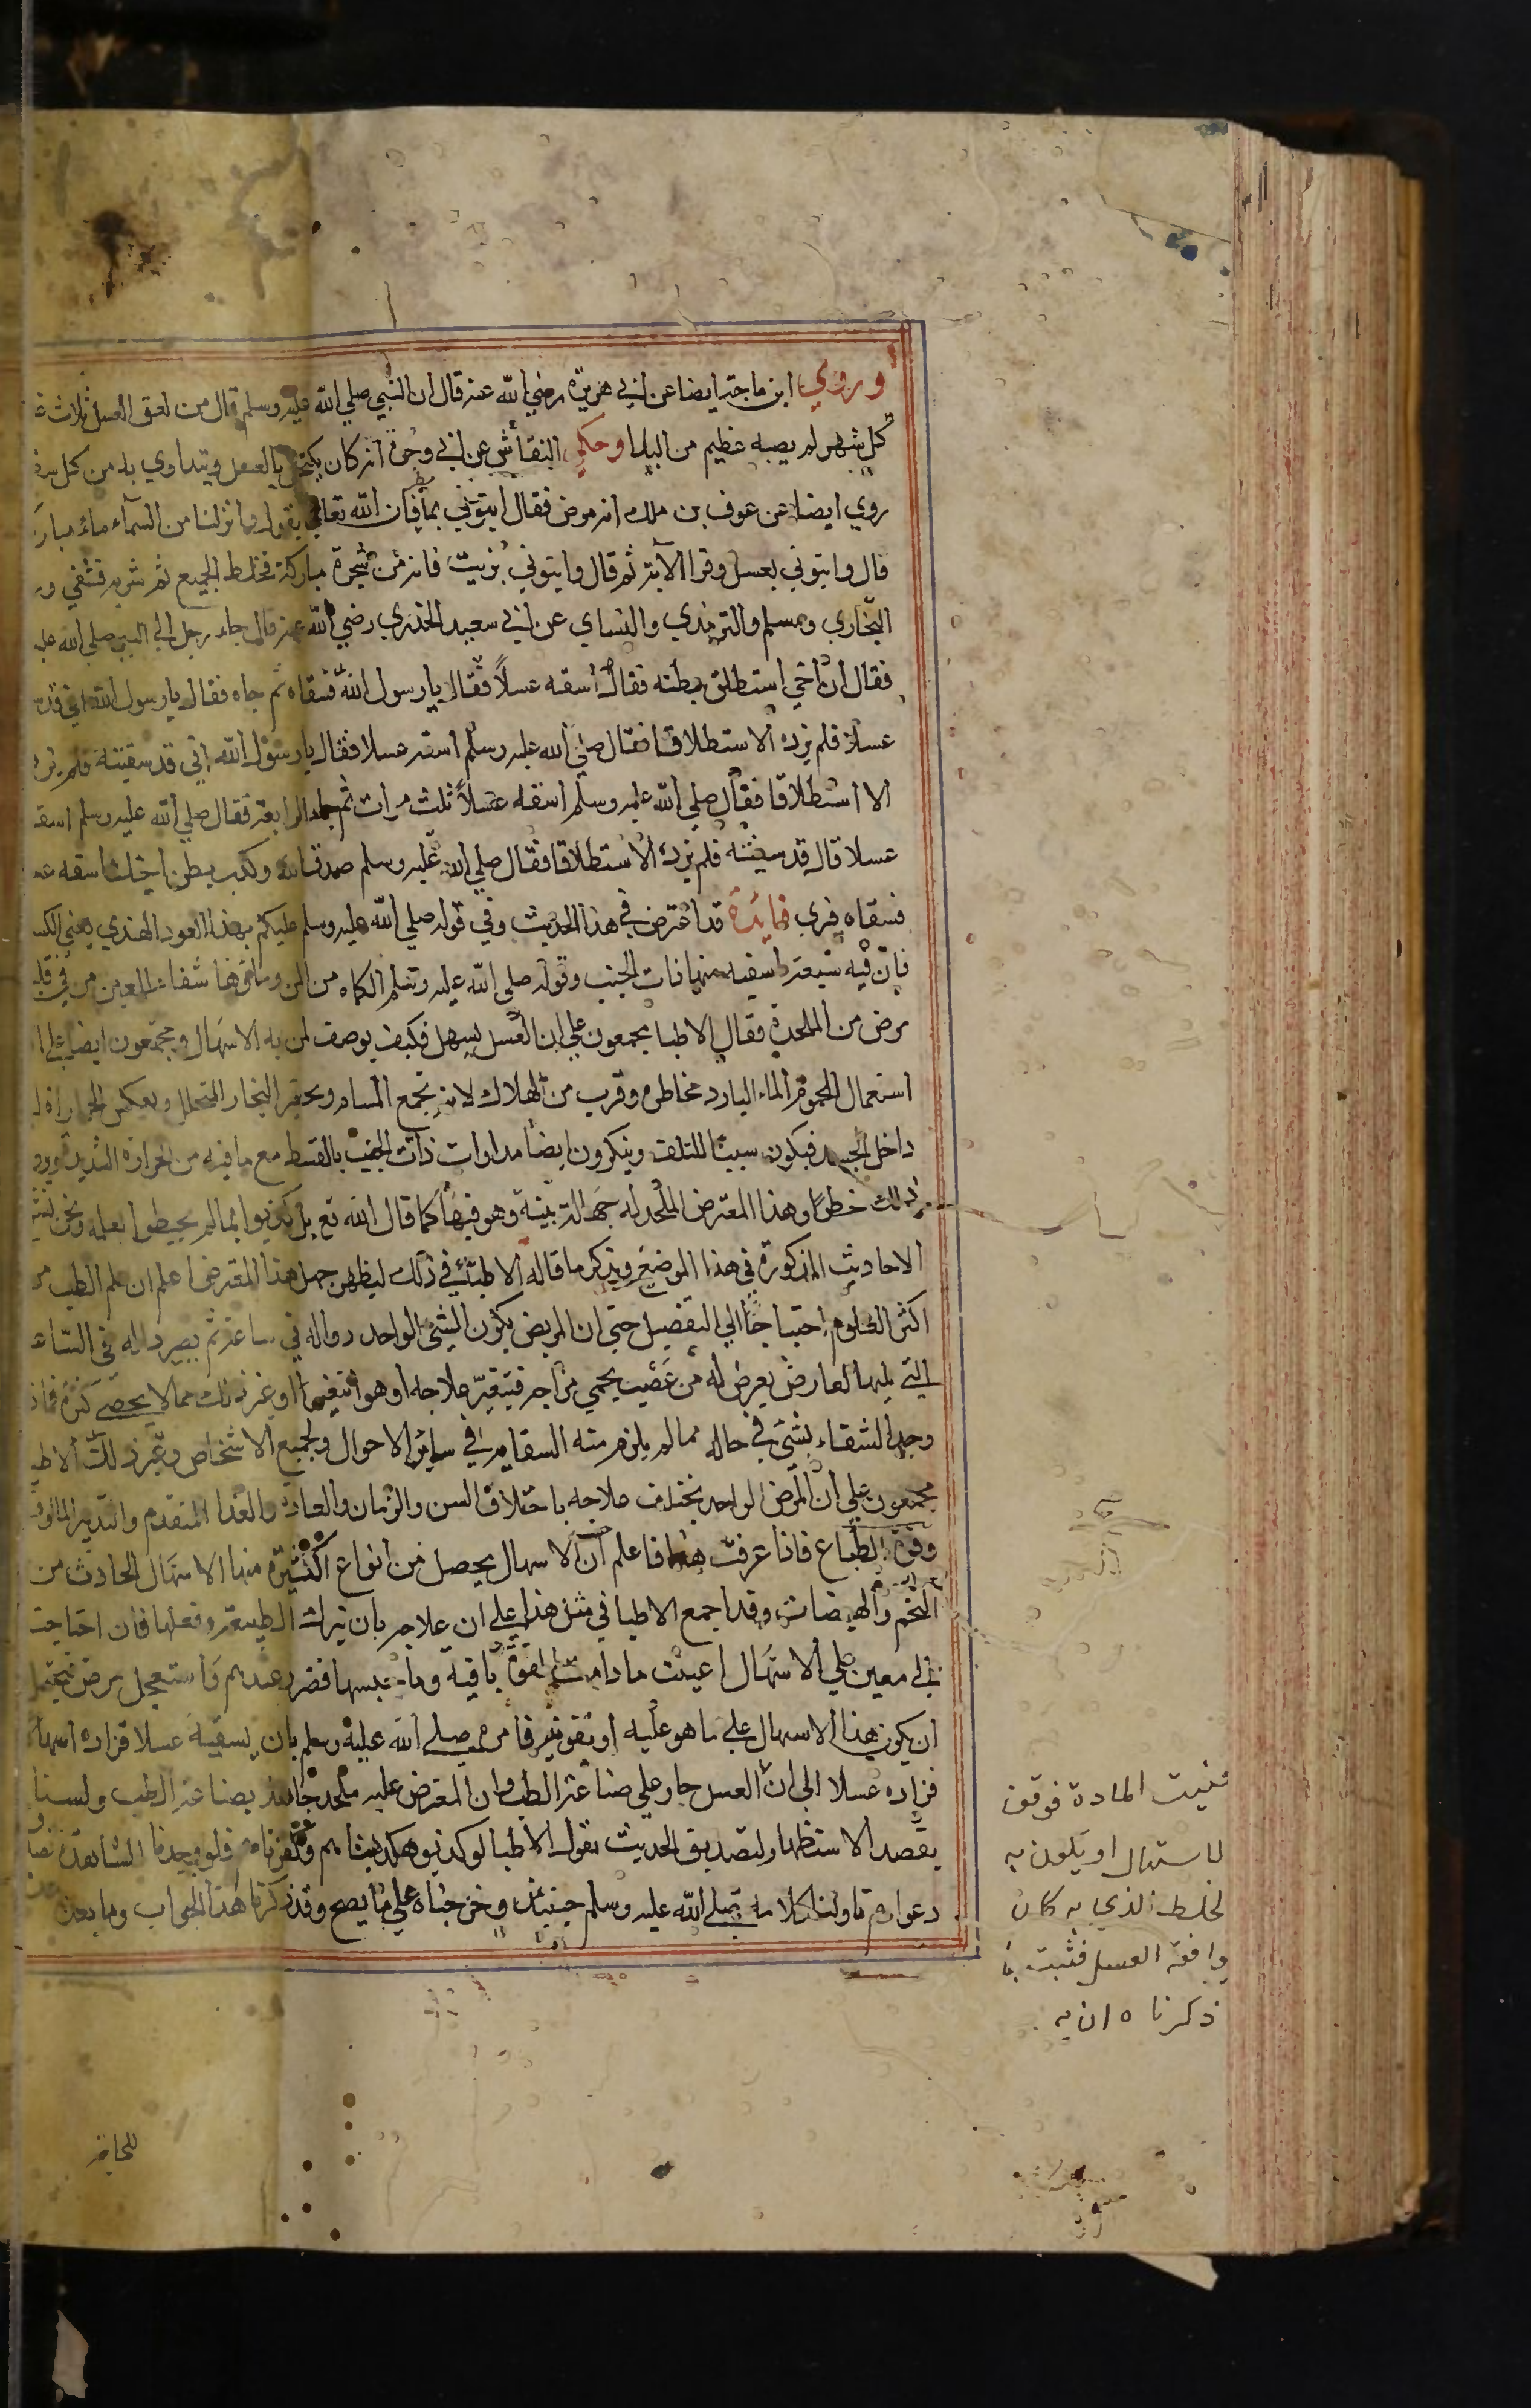 وروي ابن ماجة ايضا عن ابي هريرة رضي الله عنه قال ان النبي صلي الله عليه وسلم قال من لعق العسل ثلاث
كل شهر لم يصبه عظيم من البلا وحكي النقاش عن ابي وجرة انه كان يكتحل بالعسل ويتداوي به من كل
روي ايضا عن عوف بن ملك انه مرض فقال ايتوني بماء فان الله تعالي يقول وانزلنا من السمآء ماء مبار
قال وايتوني بعسل وقرا الآية ثم قال وايتوني بزيت فانه من شجرة مباركة فخلط الجميع ثم شربه فشفي
البخاري ومسلم والترمذي والنساي عن ابي سعيد الخذري رضي الله عنه قال جاء رجل الي النبي صلي الله
فقال ان اخي استطلق بطنه فقال اسقه عسلاً فقال يا رسول الله فسقاه ثم جاه فقال يا رسول الله اني قد
عسلا فلم يزده الا استطلاقا فقال صلي الله عليه وسلم اسقه عسلا فقال يا رسول الله اني قد سقيته فلم
الا استطلاقا فقال صلي الله عليه وسلم اسقه عسلاً ثلث مرات ثم جاء الرابعة فقال صلي الله عليه وسلم اسقه
عسلا قال قد سقيته فلم يزده الا استطلاقا فقال صلي الله عليه وسلم صدق الله وكذب بطن اخيك اسقه
فسقاه فبري فايدة قد اعترض في هذا الحديث وفي قوله صلي الله عليه وسلم عليكم بهذا العود الهندي يعني الكس
فان فيه سبعة اشفيه منها ذات الجنب وقوله صلي الله عليه وسلم الكماه من المن وماؤها شفاء للعين من في قلبه
مرض من الملحدة وقال الاطبا يجمعون علي ان العسل يسهل فكيف يوصف لمن به الاسهال ومجمعون ايضا علي
استعمال المحموم الماء البارد مخاطره وقرب من الهلاك لانه يجمع المسام ويحقن البخار المتحلل ويعكس الحرارة
داخل الجسد فيكون سببا للتلف وينكرون ايضا مداوات ذات الجنب بالقسط مع ما فيه من الحرارة الشديدة
ذلك خطرا وهذا المعترض الملحد له وهو فيها كما قال الله تع بل كذبوا بما لم يحيطوا بعلمه ونحن
الاحاديث المذكورة في هذا الموضع ونذكر ما قاله الاطباء في ذلك ليظهر جهل هذا المعترض اعلم ان علم الطب
اكثر العلوم احتياجا الي التفصيل حتي ان المريض يكون الشئ الواحد دواله في ساعة ثم يصير داله في الساعة
التي يليها لعارض يعرض له من غضب يحمي مزاجه فيتغير علاجه او هوا يتغير او غير ذلك مما لا يحصي كثرة
وجد الشفاء بشئ في حاله ما لم يلزم منه الشفاء به في ساير الاحوال ولجميع الاشخاص وغير ذلك الاطبا
مجمعون علي ان المرض الواحد يختلف علاجه باختلاف السن والزمان والعادة والغدا المتقدم والتدبير المالوف
وقوة الطباع فاذا عرفت هذا فاعلم ان الاسهال يحصل من انواع كثيرة منها الاسهال الحادث من
التخم والهيضات وقد اجمع الاطبا في مثل هذا علي ان علاجه بان يترك الطبيعة وفعلها فان احتاجت
الي معين علي الاسهال اعينت ما دامت القوة باقية وما حبسها فضرر عندهم واستعجل مرض فيحتمل
ان يكون هذا الاسهال علي ما هو عليه او تقويته فامره صلي الله عليه وسلم بان يسقيه عسلا فزاده اسهالا
فزاده عسلا الي ان العسل جار علي صناعة الطب وان المعترض عليه ملحد جاهل بصناعة الطب ولسنا
يقصد الاستظهار لتصديق الحديث بقول الاطبا لو كذبوه كذبناهم وكفرناهم فلو وجدنا المشاهدة
دعواهم تاولنا كلامه صلي الله عليه وسلم حينئذ وخرجناه علي ما يصح وقد ذكرنا هذا الجواب وما بعده
فنيت المادة فوقف
الاستهال او يكون به
لخلط الذي به كان
وافقه العسل فثبت
ذكرناه ان به